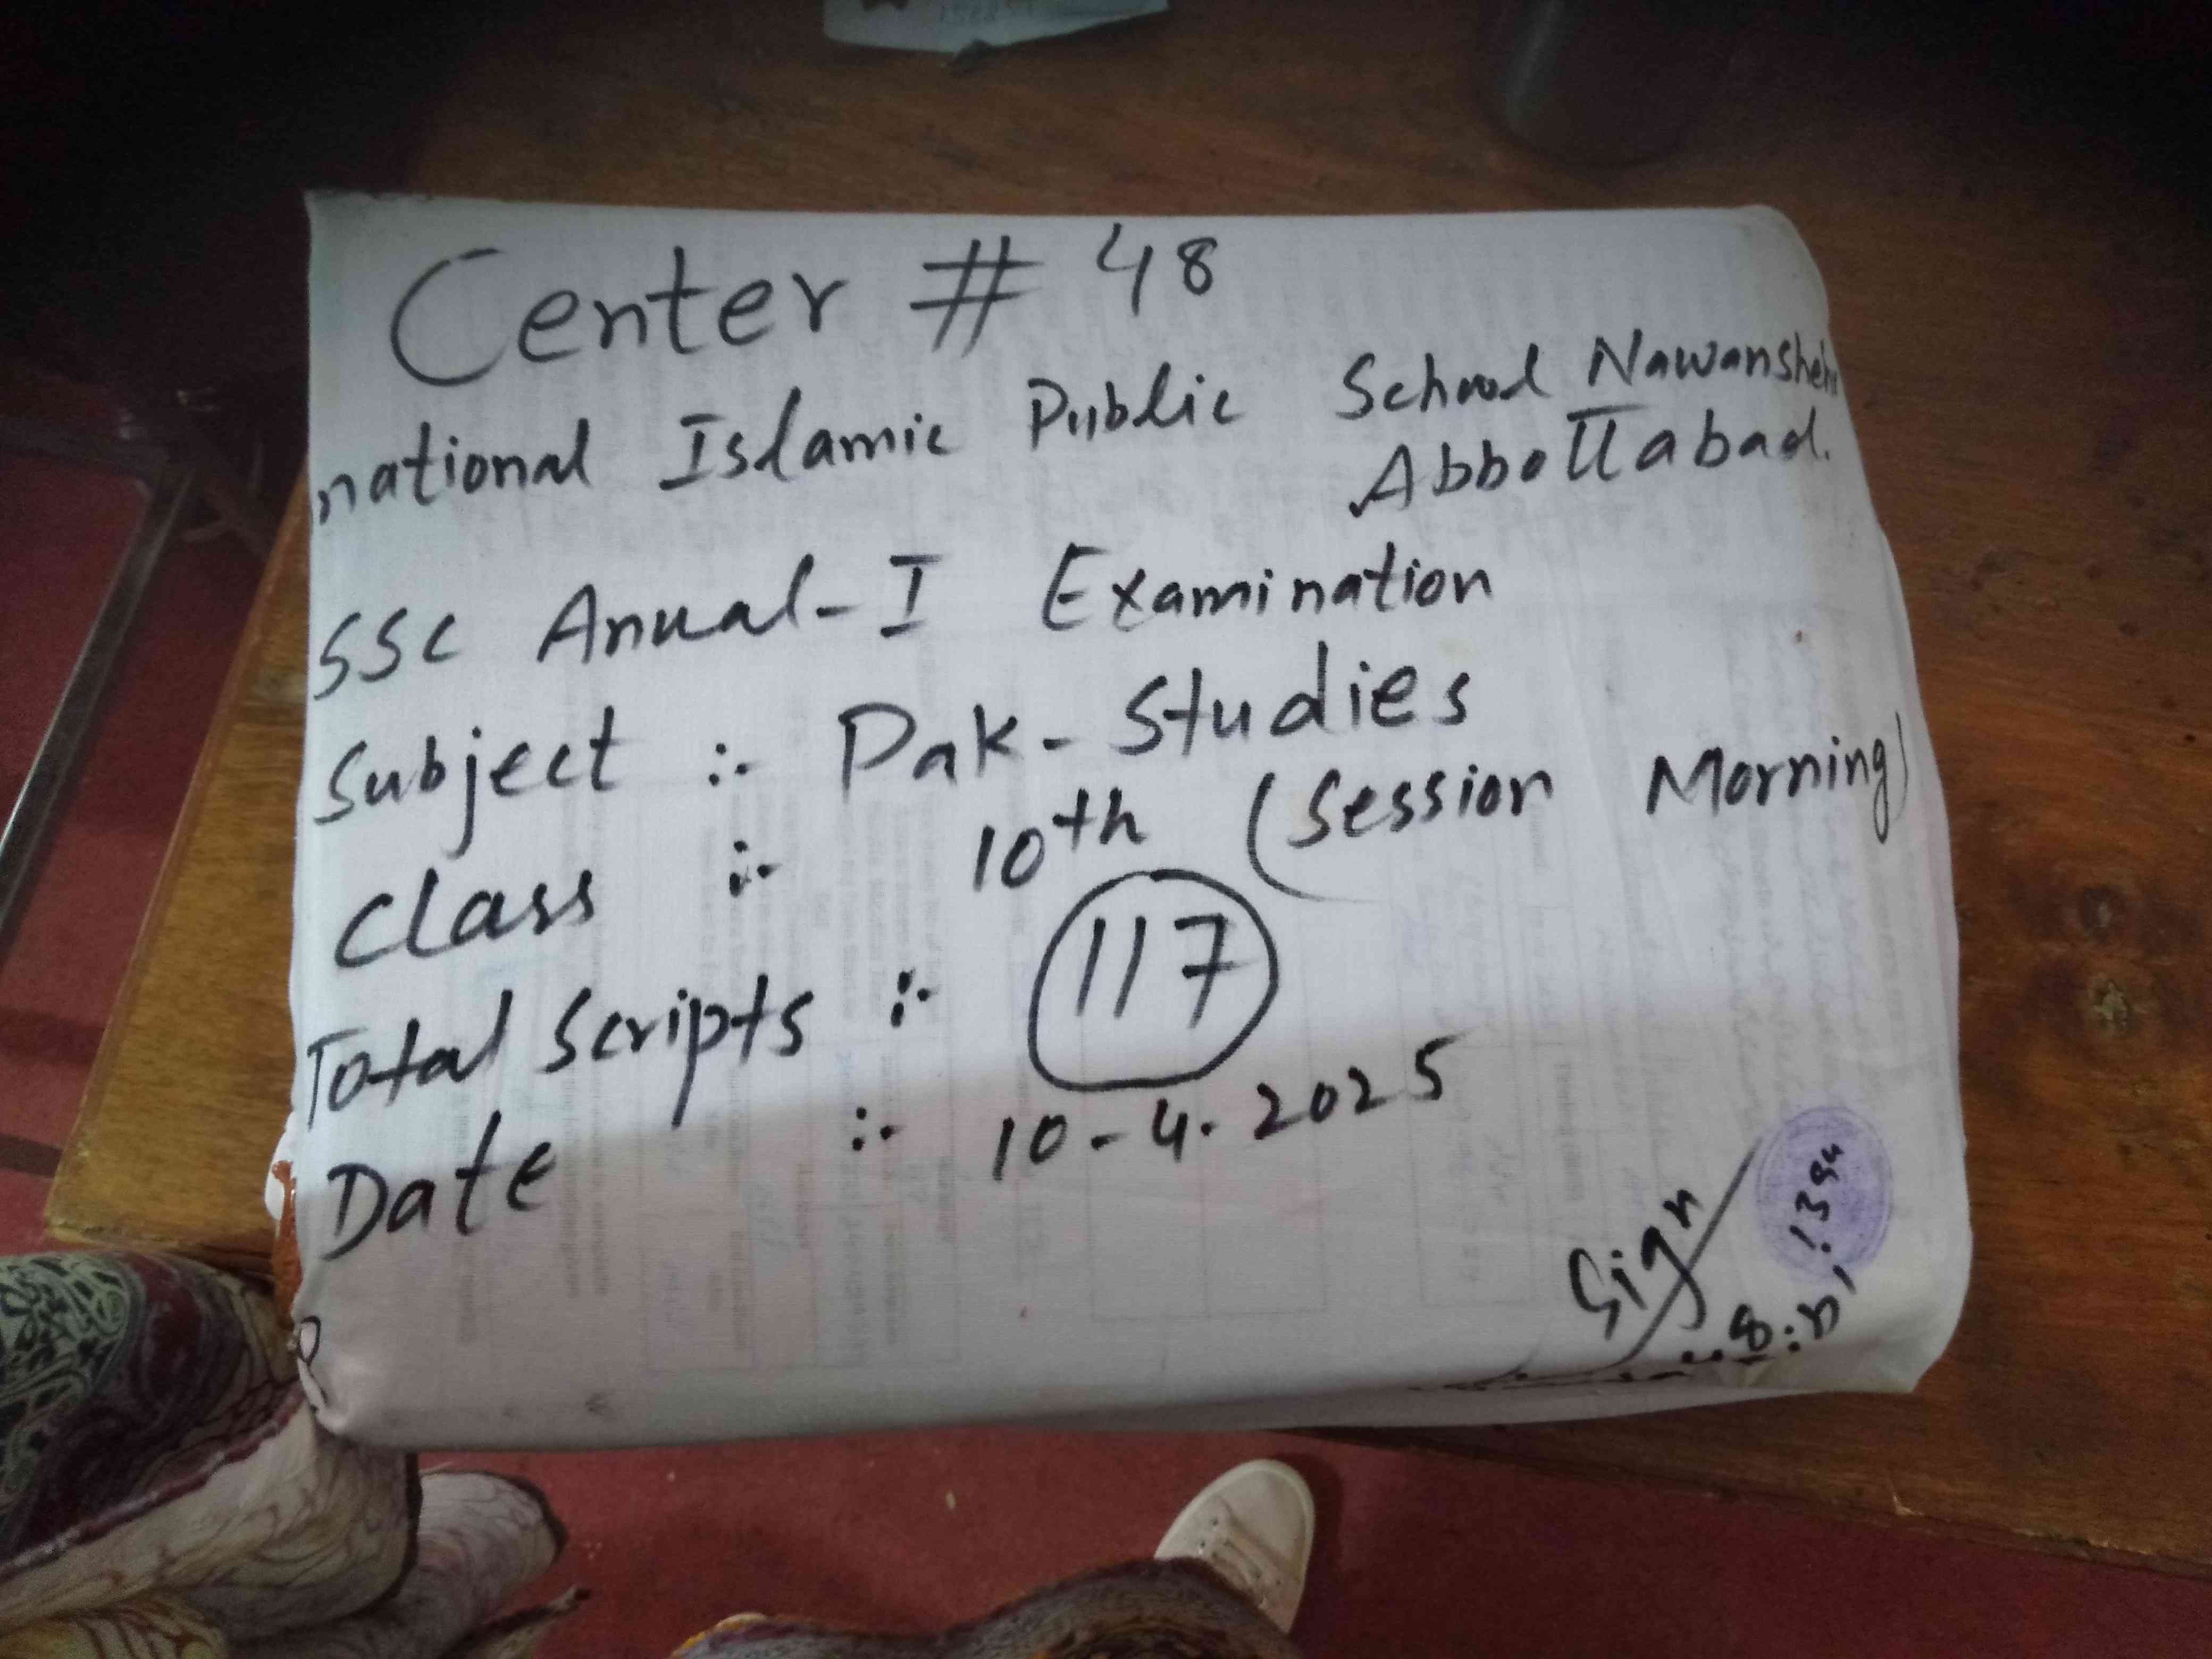 Center # 48
national Islamic Public School Nawanshehr
Abbottabad.
SSC Anual-I Examination
Subject :- Pak-Studies
Class :- 10th (Session Morning)
Total Scripts :- 117
Date :- 10-4-2025
Sign